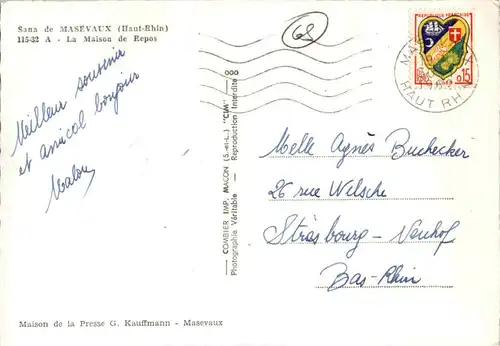 Sana de MASEVAUX (Haut-Rhin)
115-32 A - La Maison de Repos
Meilleur souvenir
et amical bonjour
68
COMBIER IMP. MACON (S.-et-L.) "CIM"
Photographie Véritable - Reproduction Interdite
REPUBLIQUE FRANÇAISE
0,15
HAUT RHIN
Melle Agnès Buchecker
26 rue Welsche
Strasbourg - Neuhof
Bas-Rhin
Maison de la Presse G. Kauffmann - Masevaux